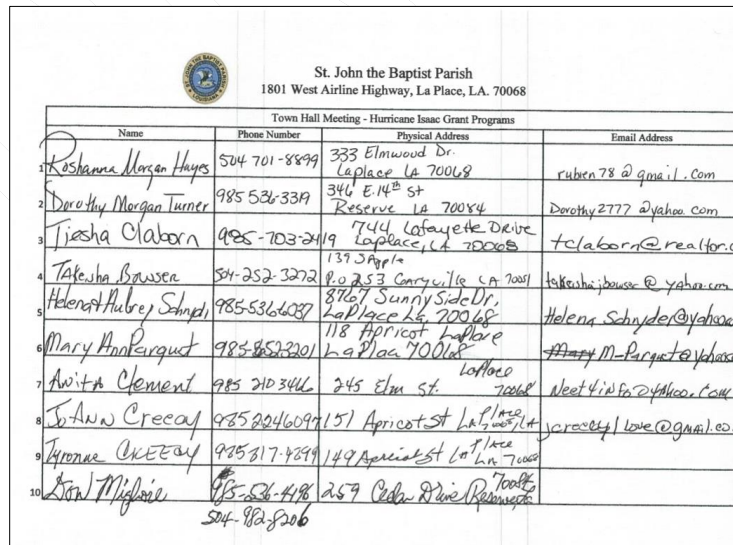 St. John the Baptist Parish
1801 West Airline Highway, La Place, LA. 70068
Town Hall Meeting - Hurricane Isaac Grant Programs
Name Phone Number Physical Address Email Address
1 Roshanna Morgan Hayes 504 701-8899 333 Elmwood Dr. Laplace LA 70068 rubien78@gmail.com
2 Dorothy Morgan Turner 985 536-3319 346 E. 14th St Reserve LA 70084 Dorothy2777@yahoo.com
3 Tiesha Claborn 985-703-2419 744 Lafayette Drive Laplace, LA 70068 tclaborn@realtor.c
4 Takeisha Bowser 504-252-3272 139 S Apple P.o 253 Garyville LA 70051 takeishajbowser@yahoo.com
5 Helena & Aubrey 985-5366037 8767 SunnySide Dr, LaPlace La, 70068 Helena Schnyder@yahoo
6 Mary Ann Parquet 985-8523201 118 Apricot LaPlace LaPlace 70068 M-Parquet@yahoo
7 Anita Clement 985 210 3466 245 Elm St. LaPlace 70068 Neet4info@yahoo.com
8 JoAnn Creecy 985 2246097 151 Apricot St LaPlace LA @gmail.co
9 Tyronne 985 817-4899 149 Apricot St LaPlace LA
10 Don 985-536-4196 259 Cedar Drive Reserve 70084
504-982-8206